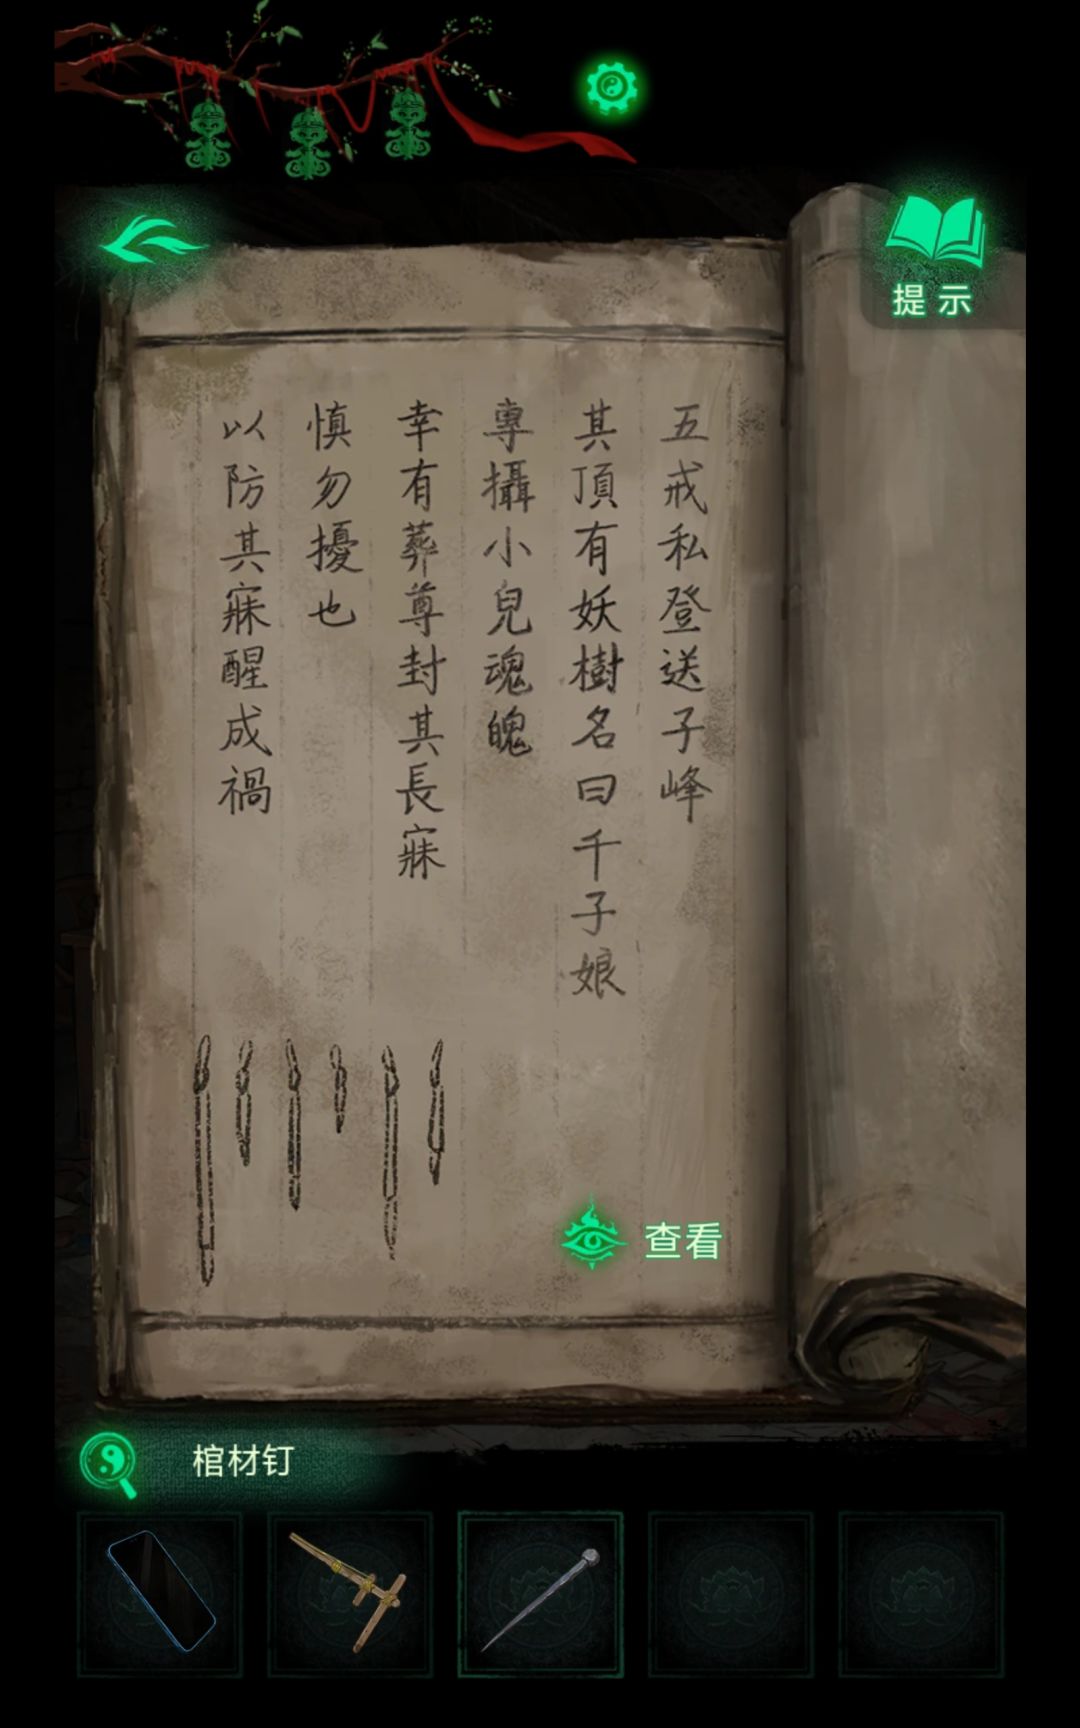 提示
五戒私登送子峰
其頂有妖樹名曰千子娘
專攝小兒魂魄
幸有葬尊封其長寐
慎勿擾也
以防其寐醒成禍
查看
棺材钉